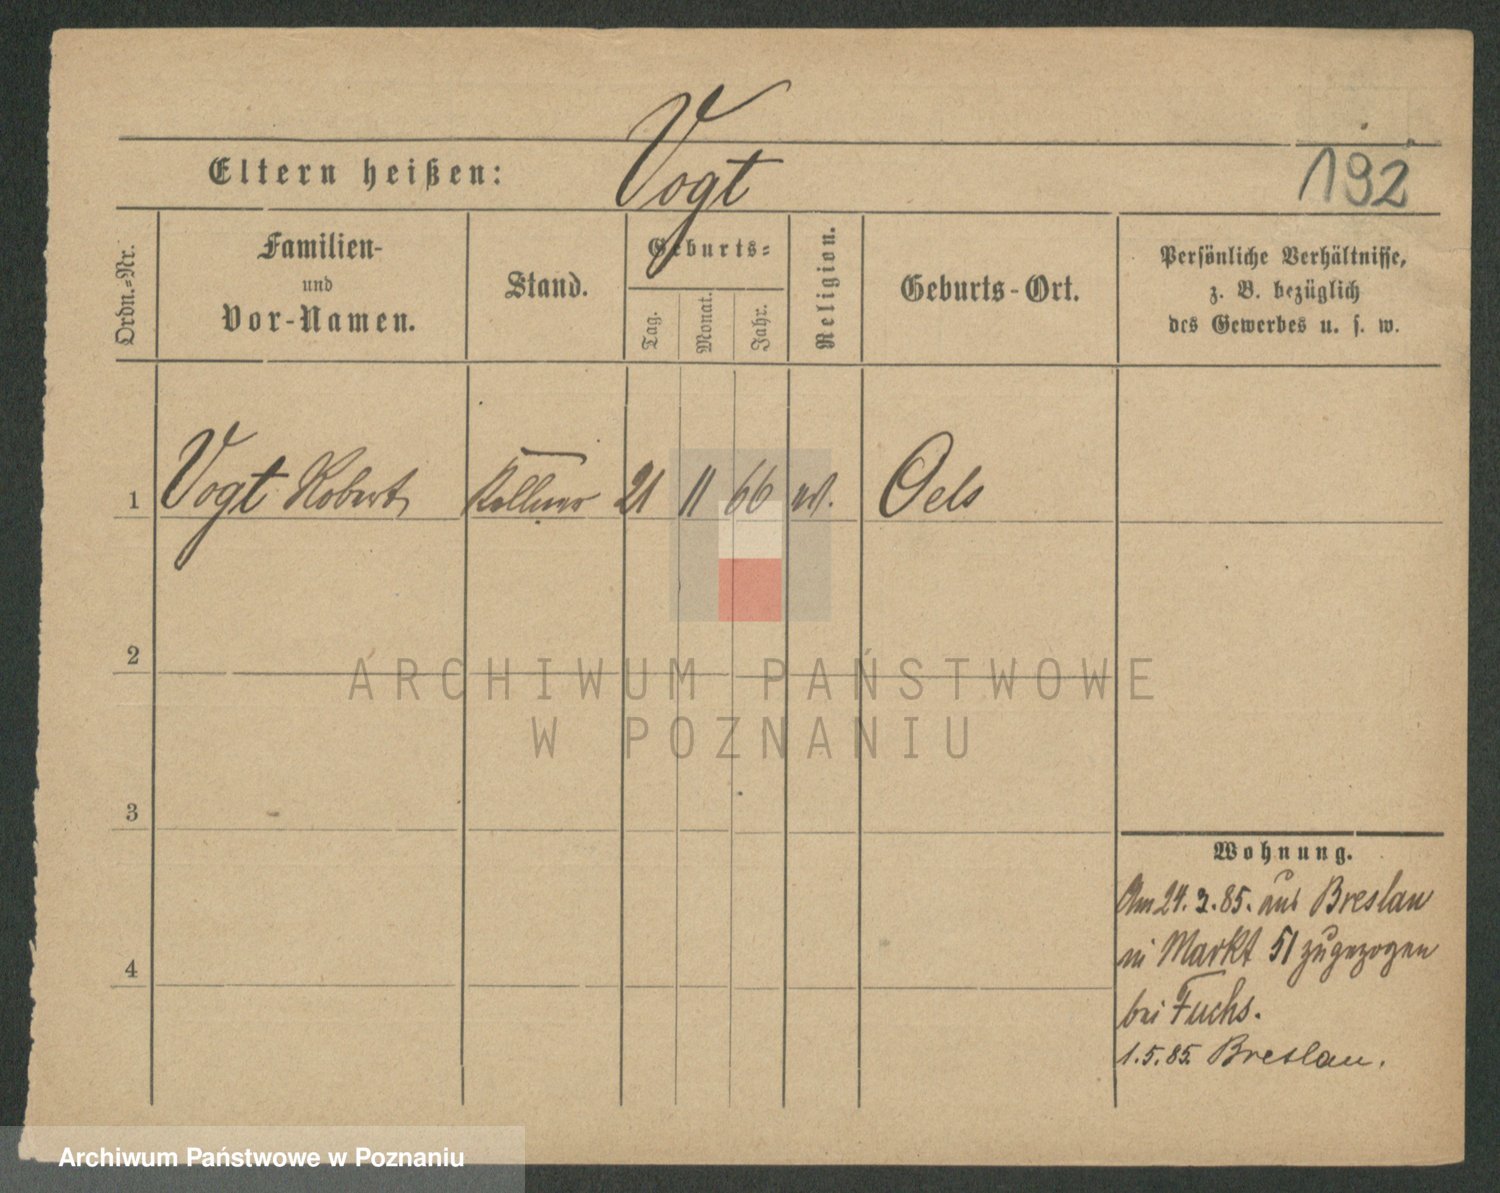 Eltern heißen: Vogt
192
Ordn.-Nr.
Familien-
und
Vor-Namen.
Stand.
Geburts-
Tag.
Monat.
Jahr.
Religion.
Geburts-Ort.
Persönliche Verhältnisse,
z. B. bezüglich
des Gewerbes u. s. w.
1 Vogt Robert Kellner 21 11 66 ev. Oels
2
ARCHIWUM PAŃSTWOWE
W POZNANIU
3
Wohnung.
Am 24. 3. 85. aus Breslau
in Markt 51 zugezogen
bei Fuchs.
4
1. 5. 85. Breslau.
Archiwum Państwowe w Poznaniu